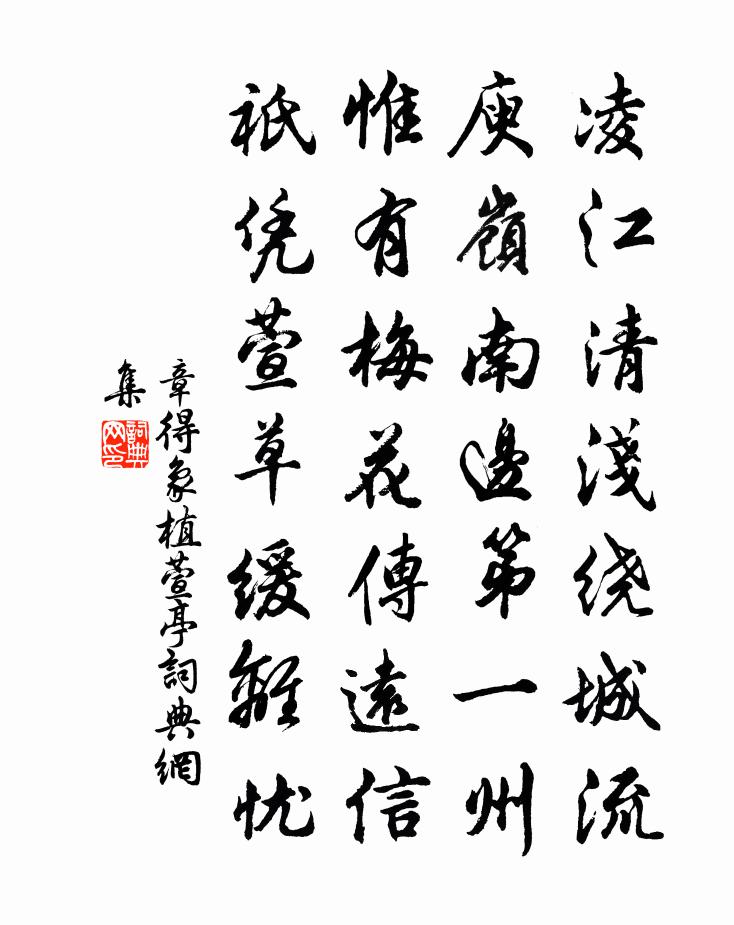 凌江清淺绕城流
庾嶺南邊第一州
惟有梅花傳遠信
祇凭萱草缓離忧
章得象植萱亭詞典網
集
詞典网印